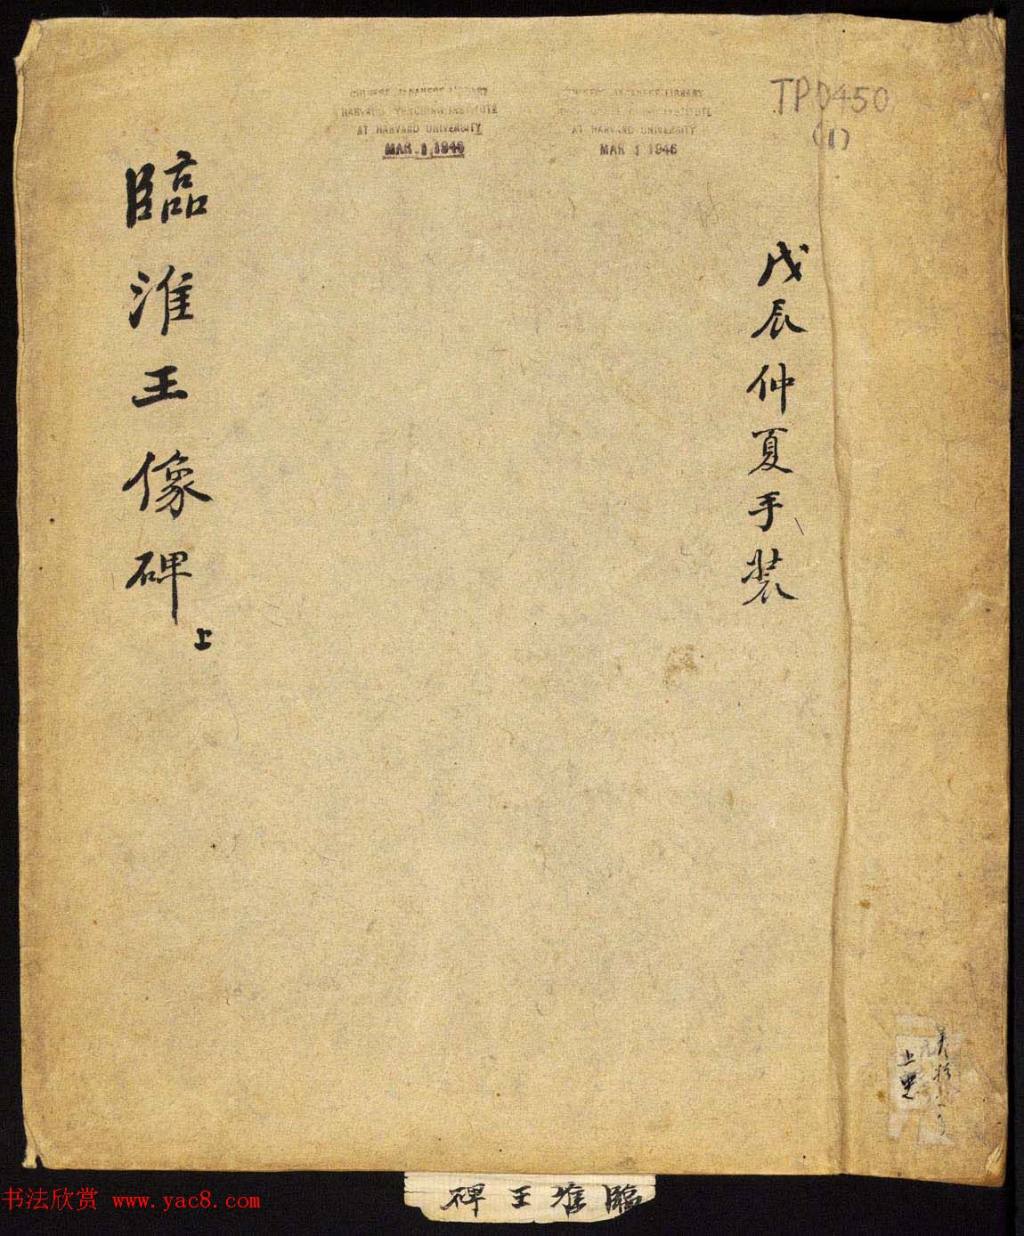 CHINESE-JAPANESE LIBRARY
HARVARD YENCHING INSTITUTE
AT HARVARD UNIVERSITY
MAR 1 1946
CHINESE JAPANESE LIBRARY
INSTITUTE
AT HARVARD UNIVERSITY
MAR 1 1946
TP 0450
(1)
戊辰仲夏手装
臨淮王像碑上
臨淮王碑
书法欣赏 www.yac8.com